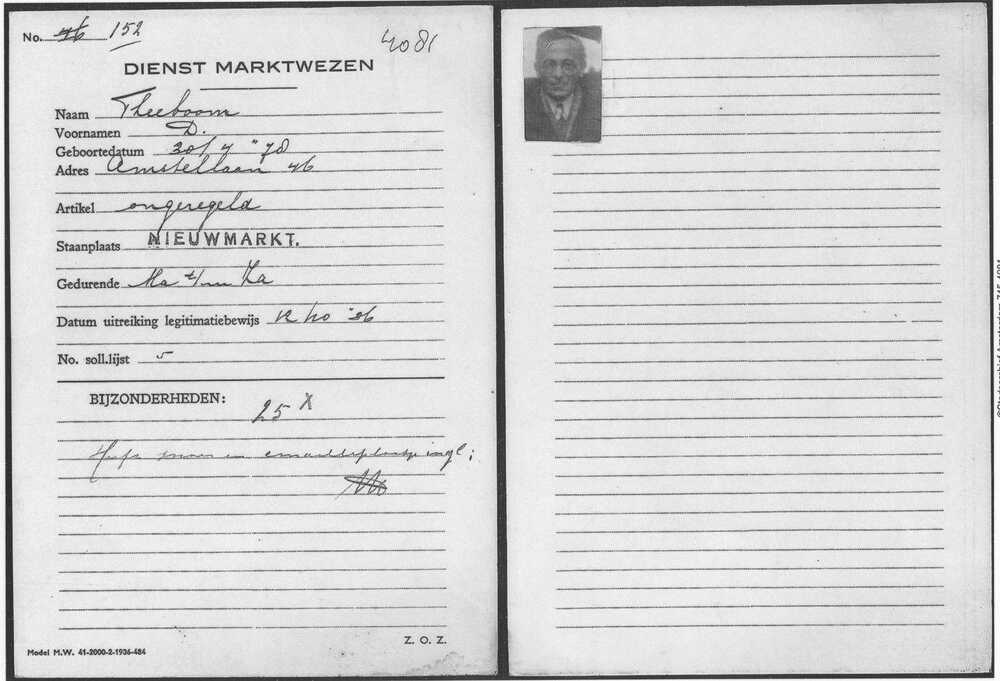 No. 46 152
4081
DIENST MARKTWEZEN
Naam Theeboom
Voornamen D.
Geboortedatum 30/7 "78
Adres Amstellaan 46
Artikel ongeregeld
Staanplaats NIEUWMARKT.
Gedurende Ma t/m Za
Datum uitreiking legitimatiebewijs 12/10 '36
No. soll.lijst 5
BIJZONDERHEDEN:
25 X
en emailleplaatje ingl;
Z. O. Z.
Model M.W. 41-2000-2-1936-484